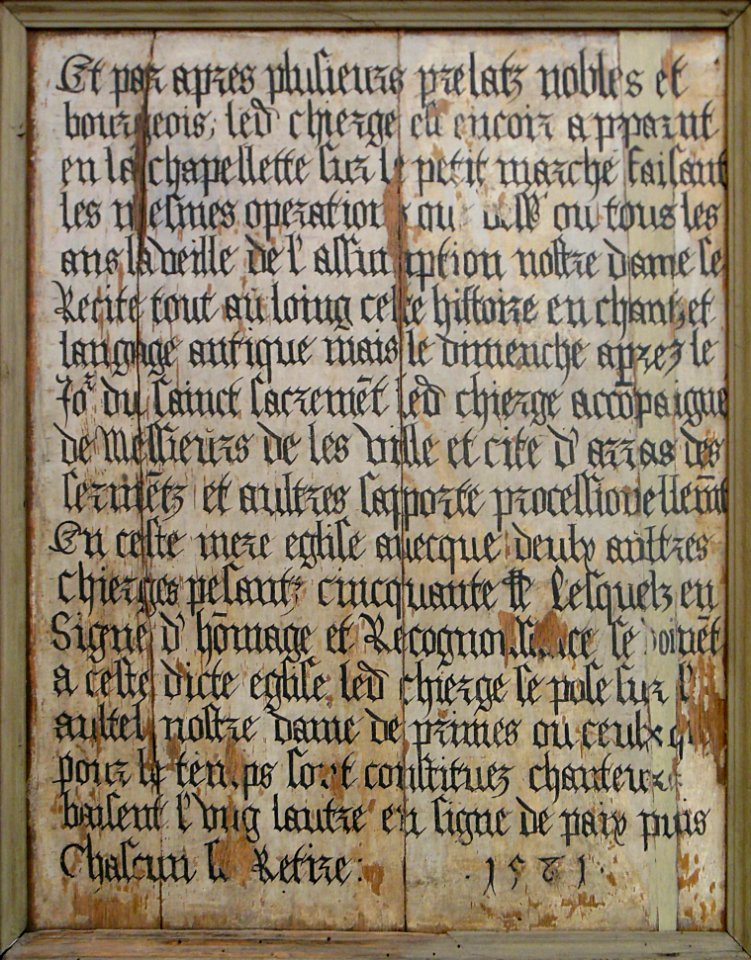 Et par apres plusieurs prelatz nobles et
bourgeois, led chierge est encoir apparut
en la chapellette sur le petit marche faisant
les mesmes operations que dess' ou tous les
ans la veille de l'assumption nostre dame se
Recite tout au loing ceste histoire en chant et
langage antique mais le dimenche aprez le
Jor du sainct sacremēt led chierge accōpaigne
de Messieurs de les ville et cite d'arras des
sermētz et aultres sapporte processionellemēt
En ceste mere eglise avecque deulx aultres
chierges pesantz cincquante lb Lesquelz en
Signe d'hōmage et Recognoissance se donnēt
a ceste dicte eglise, led chierge se pose sur l'
aultel nostre dame de primes ou ceulx qui
pour le temps sont constituez chanteurs
baisent l'ung lautre en signe de paix puis
Chascun se Retire: .1581.